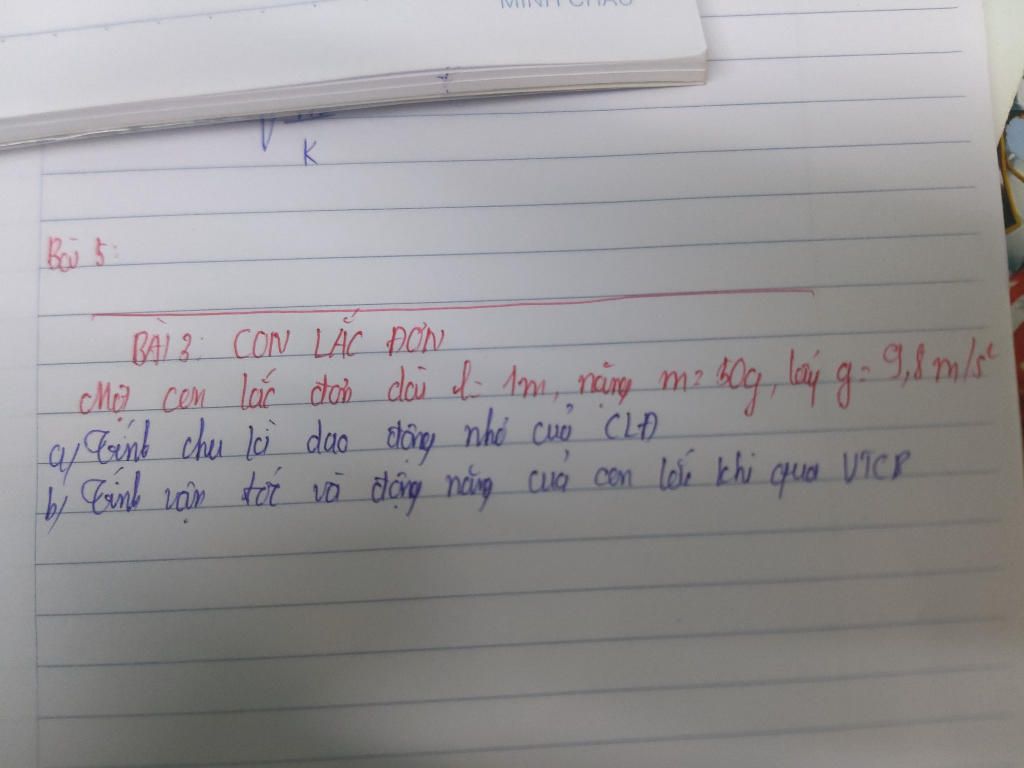 MINH CHÂU
K
Bài 5:
BÀI 3: CON LẮC ĐƠN
Một con lắc đơn dài l = 1m, nặng m = 50g, lấy g = 9,8 m/s²
a/ Tính chu kì dao động nhỏ cuả CLĐ
b/ Tính vận tốc và động năng cuả con lắc khi qua VTCB